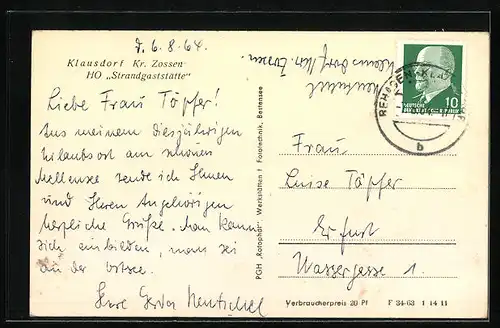 d. 6. 8. 64.
Klausdorf Kr. Zossen
HO „Strandgaststätte"
Liebe Frau Töpfer!
Aus meinem diesjährigen
Urlaubsort am schönen
Mellensee sende ich Ihnen
und Ihren Angehörigen
herzliche Grüße. Man kann
sich einbilden, man sei
an der Ostsee.
Ihre Gerda Hentschel
Klausdorf Kr. Zossen.
PGH „Rotophot" Werkstätten f. Fototechnik, Bestensee
DEUTSCHE
10
REHAGEN-KLAUSDORF
b
Frau
Luise Töpfer
Erfurt
Wassergasse 1.
Verbraucherpreis 20 Pf
F 34-63 1 14 11